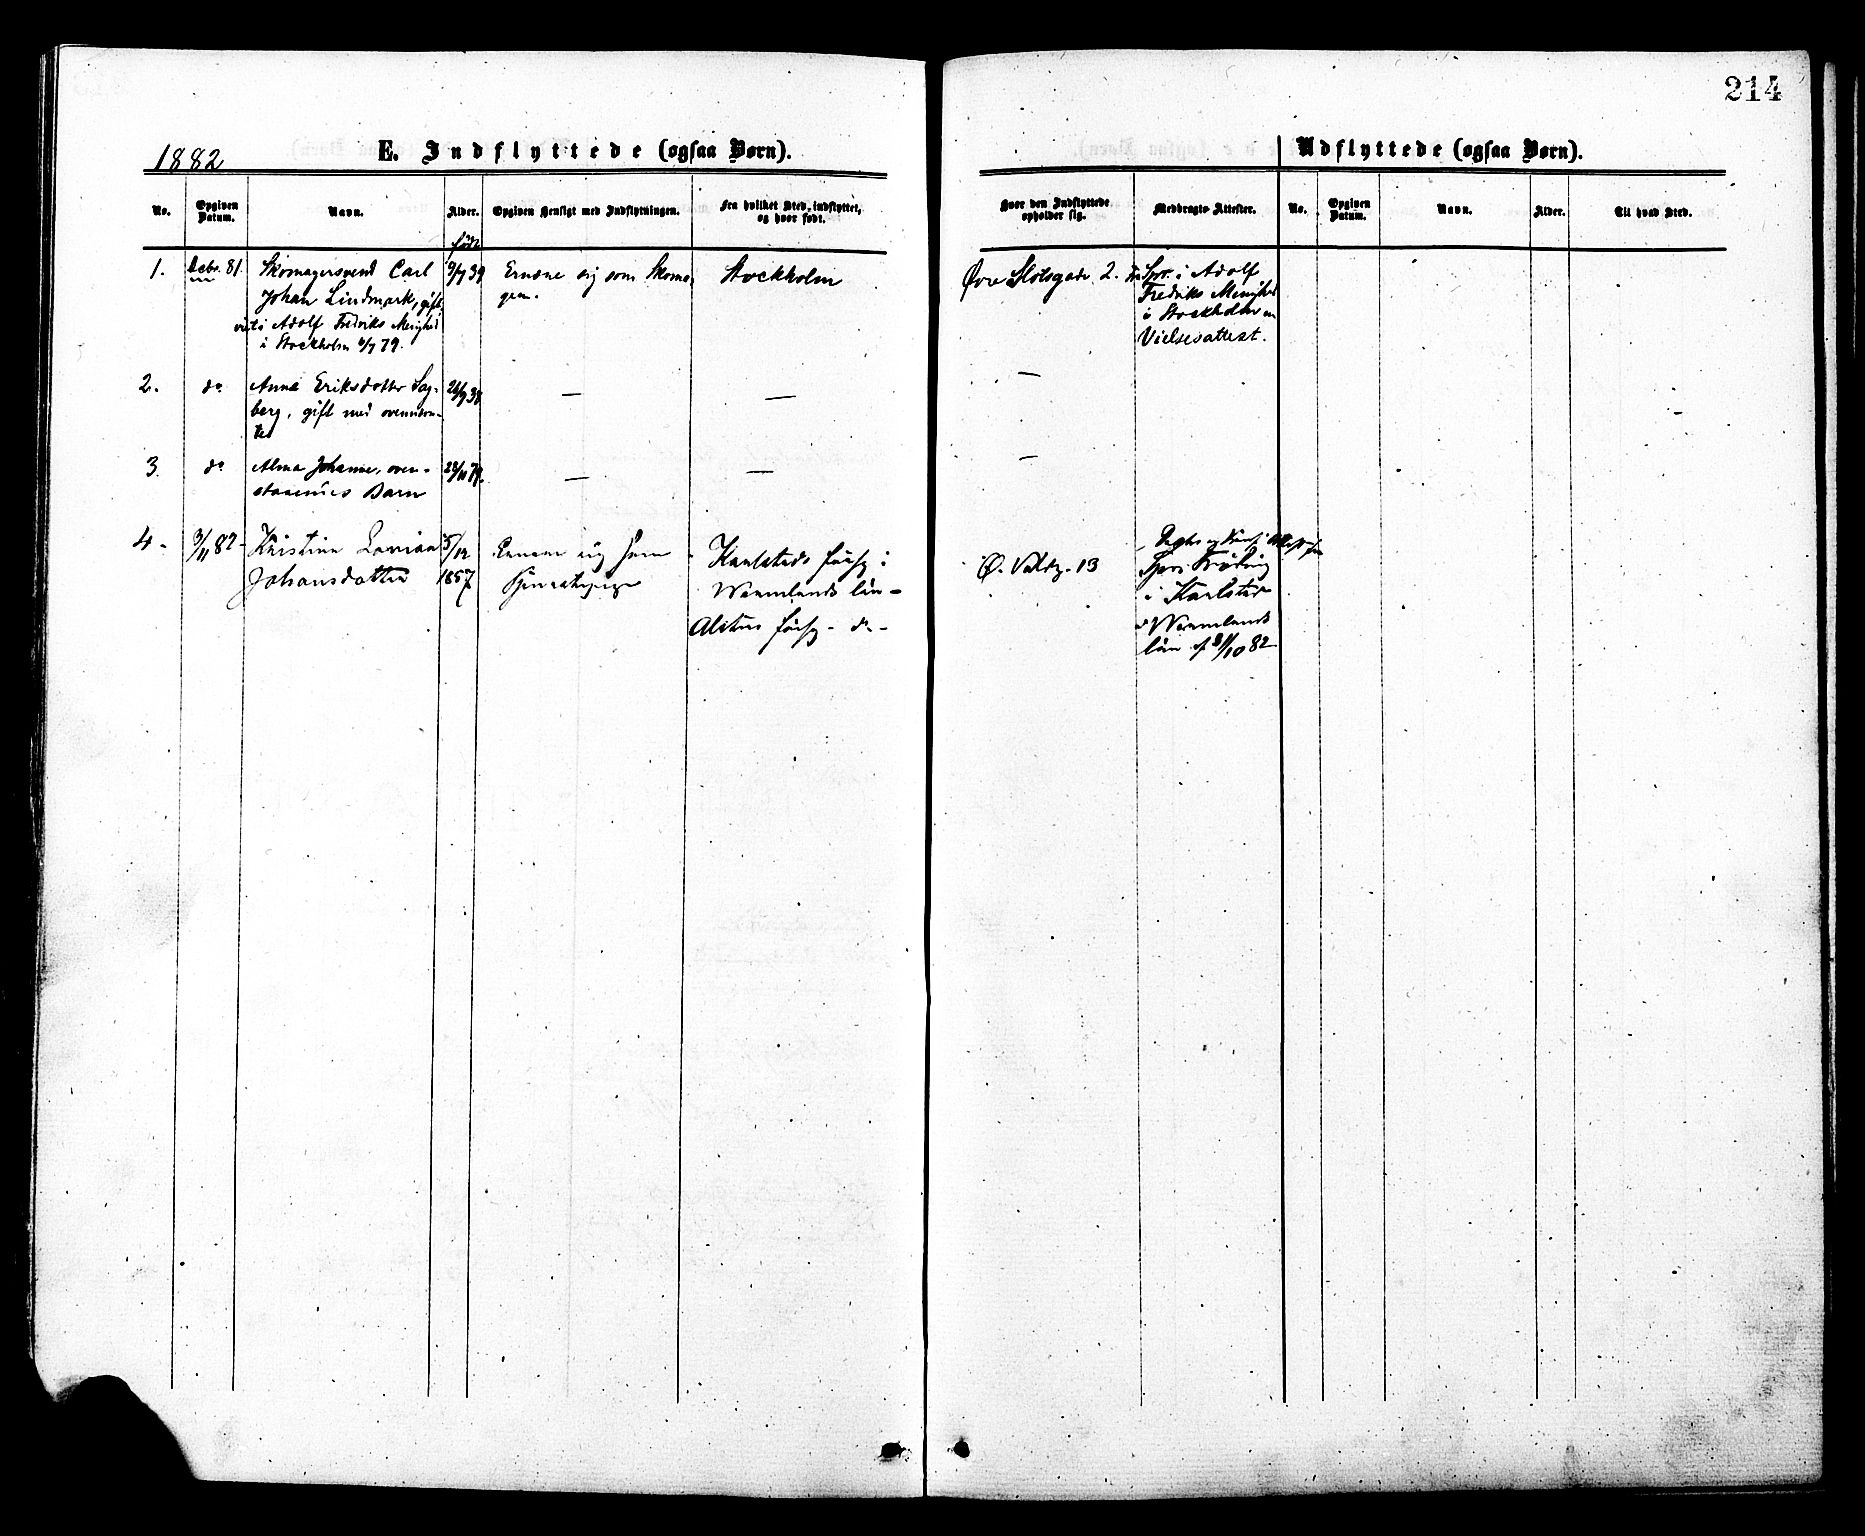 214
1882
E. Indflyttede (ogsaa Børn).
Udflyttede (ogsaa Børn).
No.
Opgiven Datum.
Navn.
Alder.
Opgiven Hensigt med Indflytningen.
Fra hvilket Sted, indflyttet,
og hvor født.
Hvor den Indflyttede
opholder sig.
Medbragte Attester.
No.
Opgiven Datum.
Navn.
Alder.
Til hvad Sted.
født
1. Decbr. 81. Skomagersvend Carl
Johan Lindmark, gift,
viet i Adolf Fredriks Menighed
i Stockholm
9/7 39
Ernære sig som Skoma-
ger.
Stockholm
Øvre Slotsgade 2.
Spr. i Adolf
Fredriks Menighed
i Stockholm
Vielsesattest.
2. do Anna Eriksdotter
berg, gift med ovennævn-
te
26/7 38
—
—
—
3. do Alma Johanne, oven-
staaendes Barn
—
—
—
4- 3/11 82- Kristina Lovisa
Johansdotter
5/12
1857
Ernære sig som
Tjenestepige
Karlstads försg i
Wermlands län-
Alsters försg - do-
Ø. Voldg. 13
i Karlstad
Wermlands
län 8/10 82